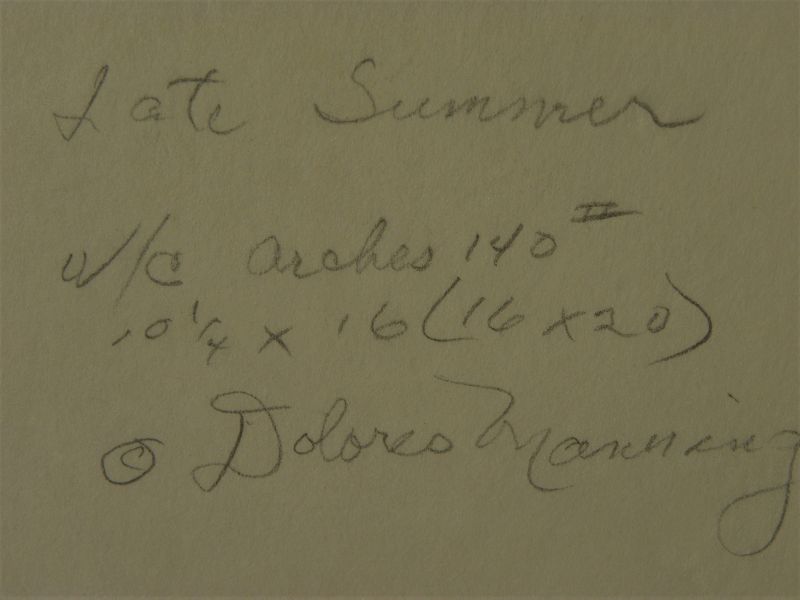 Late Summer
w/c arches 140#
10 1/4 x 16 (16 x 20)
© Dolores Manning